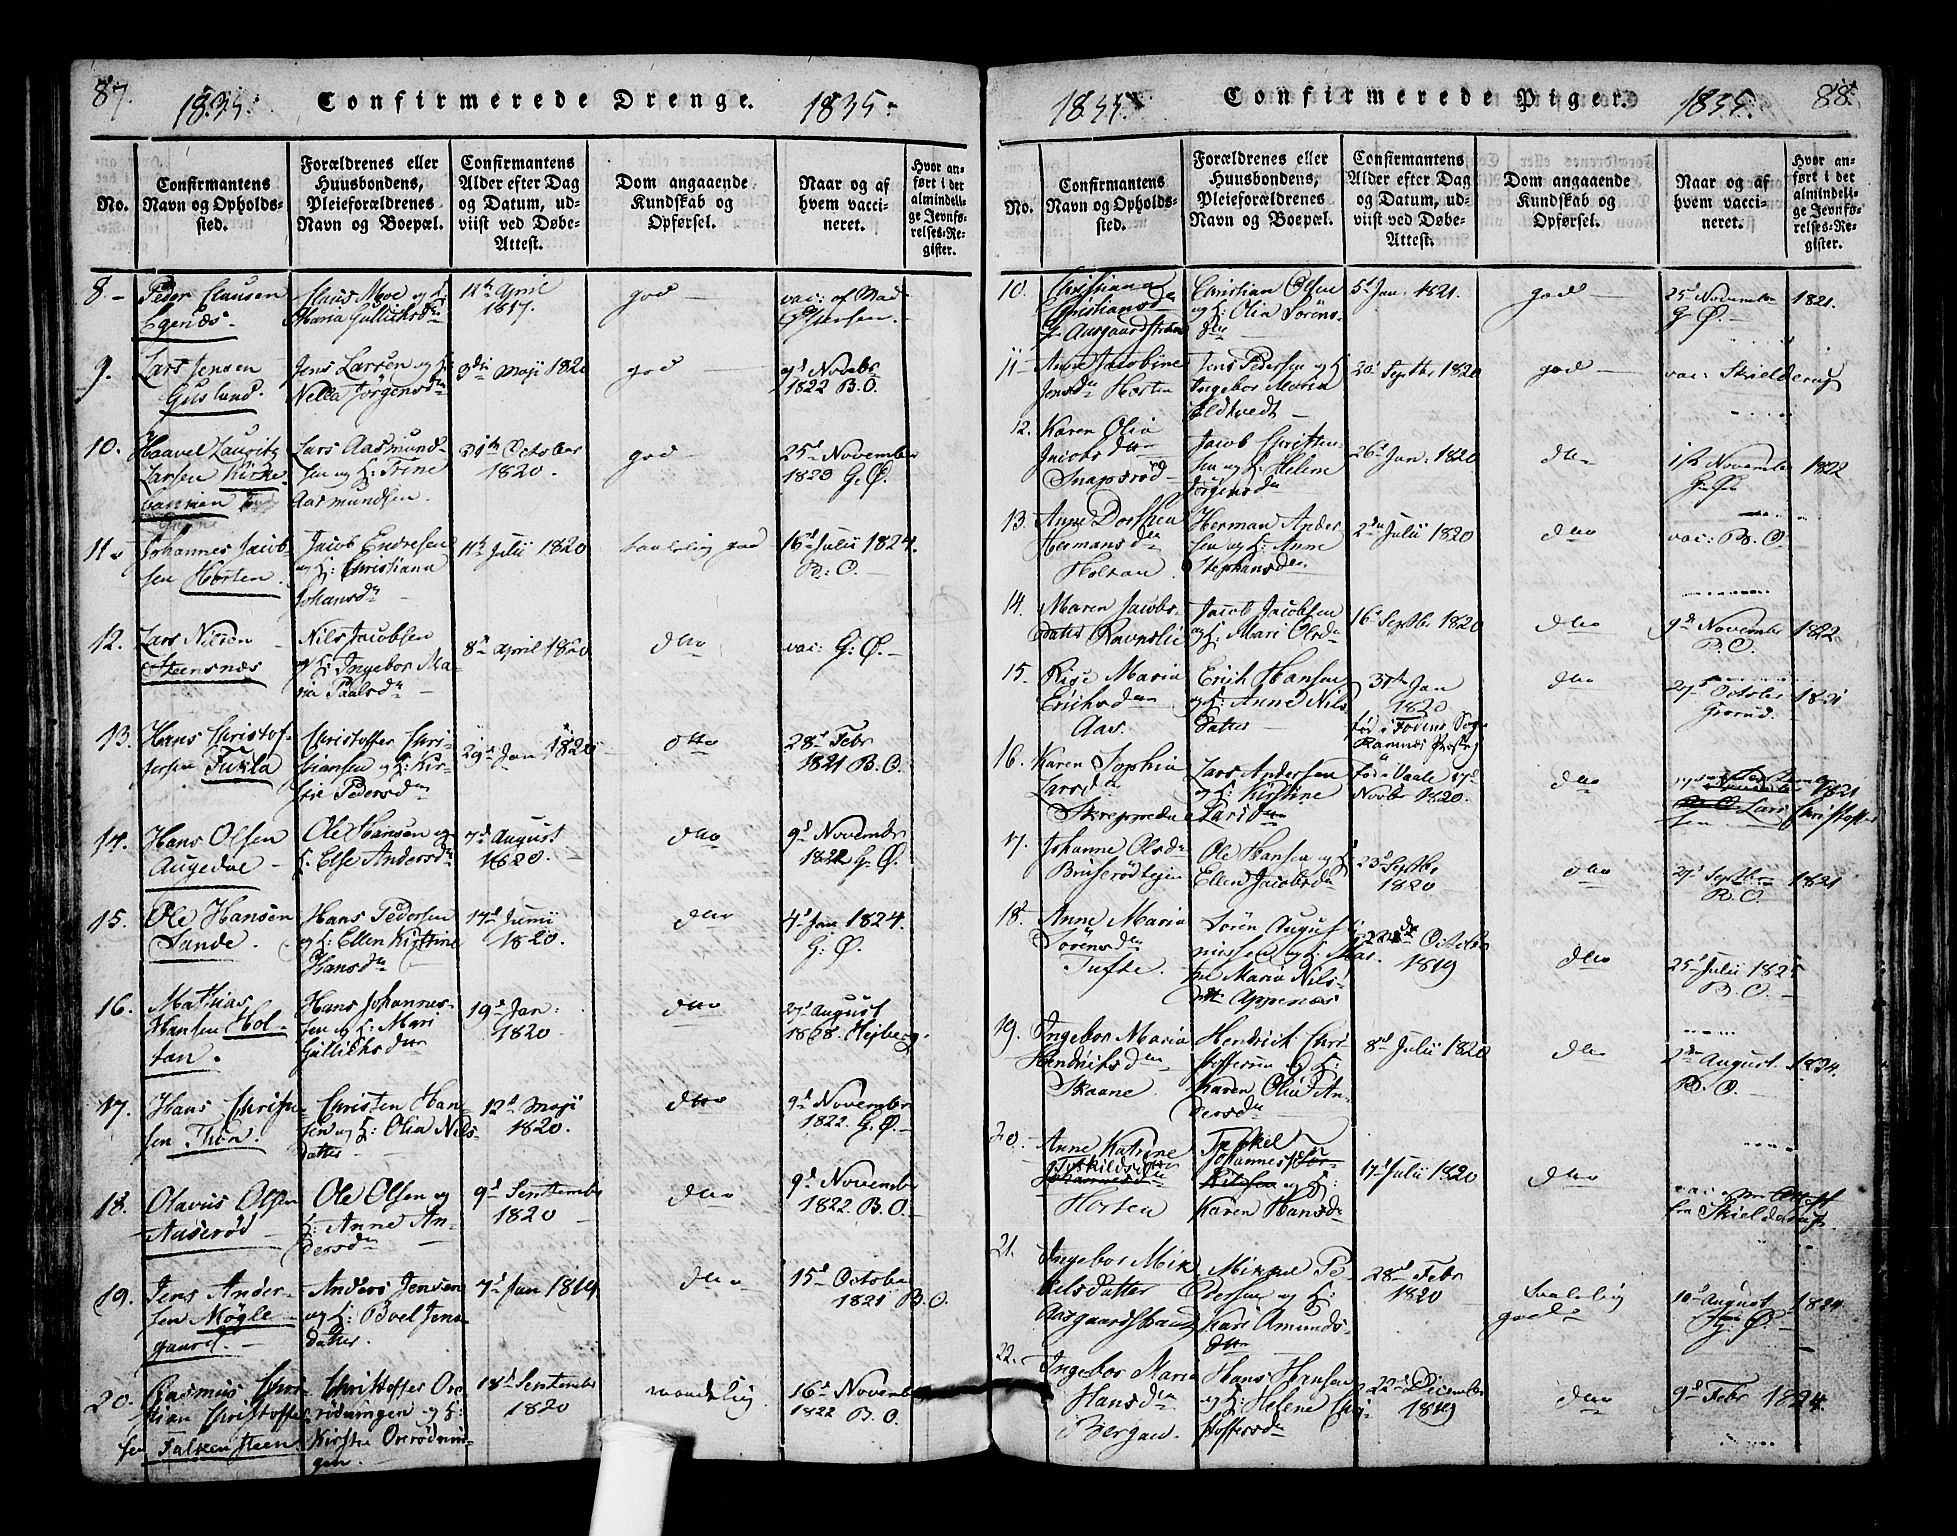 87.
1835.
Confirmerede Drenge.
1835.
No.
Confirmantens
Navn og Opholds-
sted.
Forældrenes eller
Huusbondens,
Pleieforældrenes
Navn og Boepæl.
Confirmantens
Alder efter Dag
og Datum, ud-
viist ved Døbe-
Attest.
Dom angaaende
Kundskab og
Opførsel.
Naar og af
hvem vacci-
neret.
Hvor an-
ført i det
almindeli-
ge Jevnfø-
relses-Re-
gister.
8.
Peder Clausen
Egenæs.
Claus Moe og H:
Maria Gullichsd
11te April
1817.
god
vac: af Mad
9.
Lars Jensen
Guslund.
Jens Larsen og H:
Nella Jørgensd
3die Maji 1820
god
9d Novebr
1822 B.O.
10.
Haavel Lauritz
Larsen Kirke
bakken
Lars Aasmund-
sen og H: Trine
Aasmundsen.
October
1820.
god
25d November
1823 G.Ø.
11.
Johannes Jacob
sen Horten.
Jacob Endresen
og H: Christiana
Johansd
11te Julii 1820
taalelig god
16d Julii 1824.
B: O.
12.
Lars Nilsen
Steensnæs
Nils Jacobsen
og H: Ingebor Ma-
ria Paalsd
8de April 1820
dto
vac: G: Ø.
13.
Hans Christof-
fersen
Christoffer Chri-
stiansen og H: Kir-
stie Pedersd
29d Jan 1820
dto
28d Febr
1821 B.O.
14.
Hans Olsen
Augedal
Ole Hansen og
H: Else Andersd
7d August
1820.
dto
9d Novembr
1822 G.Ø.
15.
Ole Hansen
Sunde.
Hans Pedersen
og H: Ellen Kirstine
Hansd
17d Junii
1820.
dto
4d Jan 1824.
G: Ø.
16.
Mathias
Hansen Hol-
tan.
Hans Johannes-
sen og H: Mari
Gullichsd
19d Jan:
1820.
dto
27d August
1828. Hejberg.
17.
Hans Christen
sen Thon.
Christen Han-
sen og H: Olia Nils-
datter
12d Maji
1820.
dto
9d November
1822. G.Ø.
18.
Olavus Olsen
Aaserød
Ole Olsen og
H: Anne An-
dersd
9d September
1820
dto
9d November
1822. B.O.
19.
Jens Ander-
sen Møgle
gaard.
Anders Jensen
og H: Boel Jens-
datter.
7d Jan 1819
dto
15d October
1821 B.O.
20.
Rasmus Chri-
stian Christoffer
sen Falkensteen
Christoffer Ore
rødningen og H:
Kirstie Orerødnin-
gen
18d September
1820
maadelig
16d November
1822 B.O.
1835.
Confirmerede Piger.
1835.
88.
No.
Confirmantens
Navn og Opholds-
sted.
Forældrenes eller
Huusbondens,
Pleieforældrenes
Navn og Boepæl.
Confirmantens
Alder efter Dag
og Datum, ud-
viist ved Døbe-
Attest.
Dom angaaende
Kundskab og
Opførsel.
Naar og af
hvem vacci-
neret.
Hvor an-
ført i det
almindeli-
ge Jevnfø-
relses-Re-
gister.
10.
Christiana
Christiansd
Aasgaardstrand
Christian Olsen
og H: Olia Sørens-
d
5d Jan. 1821.
god
25d November 1821.
G. Ø.
11.
Anne Jacobine
Jensd Horten
Jens Pedersen og H
Ingebor Maria
Eldtvedt
20d Septbr 1820
god
vac: Skielderup
12.
Karen Olia
Jacobsd
Snapsrød
Jacob Christen-
sen og H. Helene
Jørgensd
26d Jan: 1820
dto
November 1822
13.
Anne Dorthea
Hermansd
Holtan.
Herman Ander
sen og H: Anne
Stephansd
2den Julii 1820
dto
vac: B. O.
14.
Maren Jacobs-
datter Ravnslie
Jacob Jacobsen
og H: Mari Olsd
16d Septbr 1820
dto
9d November 1822
B.O.
15.
Erichsd
Aas.
Erich Hansen
og H: Anne Nils-
datter
31te Jan
1820
fød i Fovens Sogn
Ramnes Præstg
dto
27d October 1821
Grorud.
16.
Karen Sophia
Larsd
Lars Andersen
og H: Kirstine
Larsd
fød i Vaale 17d
Novbr 1820.
dto
1821
Lars Christoffer
sen
17.
Johanne Olsd
Bruserødejen
Ole Hansen og H
Ellen Jacobsd
23d Septbr
1820
dto
27d Septbr 1821
B.O.
18.
Anne Maria
Sørensd
Tufte.
Søren Augusti-
nussen og H: Mar.
the Maria Nils-
dtr Appenæs
October
1819
dto
25d Julii 1825
B.O.
19.
Ingebor Maria
Hendrichsd
Skaane
Hendrich Chri-
stoffersen og H:
Karen Olia An-
dersd
8d Julii 1820
dto
2den August 1824.
B. O.
20.
Anne Katrine
Horten
Johannesen
og H:
Karen Hansd
17d Julii 1820
dto
fra Skielderup.
21.
Ingebor Mik
kelsdatter
Aasgaardstrand
Mikkel Pe-
dersen og H:
Kari Amunds-
dtr
28d Febr
1820
Taalelig
god
10d August 1824
G. Ø.
22.
Ingebor Maria
Hansd
Bergan.
Hans Hansen
og H: Helene Chri-
stoffersd
22d December
1819
dto
9d Febr 1824.